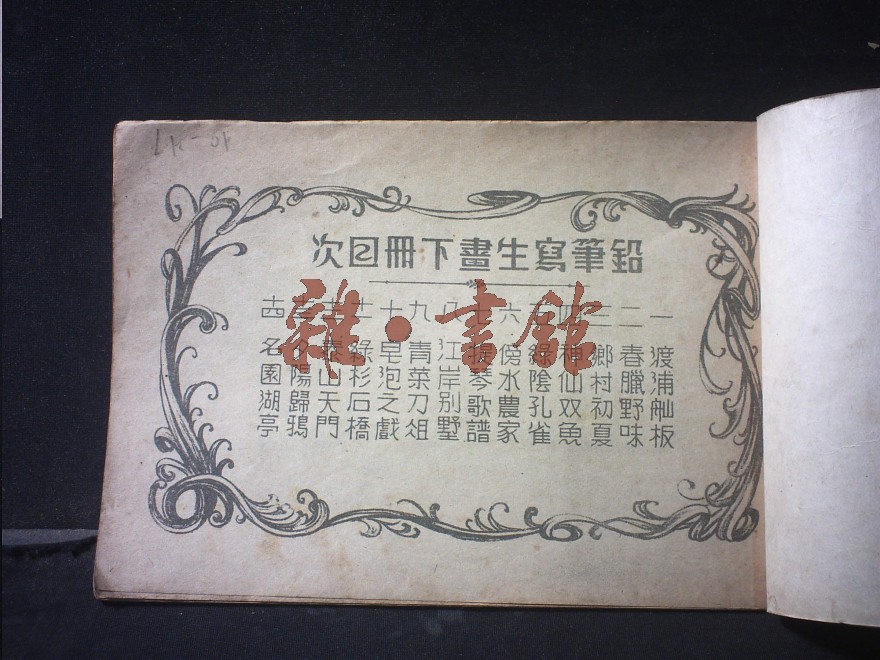 鉛筆寫生畫下冊目次
一 渡浦舢板
二 春臘野味
三 鄉村初夏
四 神仙双魚
五 綠陰孔雀
六 傍水農家
七 提琴歌譜
八 江岸别墅
九 青菜刀俎
十 皂泡之戲
十一 綠杉石橋
十二 泰山天門
十三 夕陽歸鴉
十四 名園湖亭
雜·書館